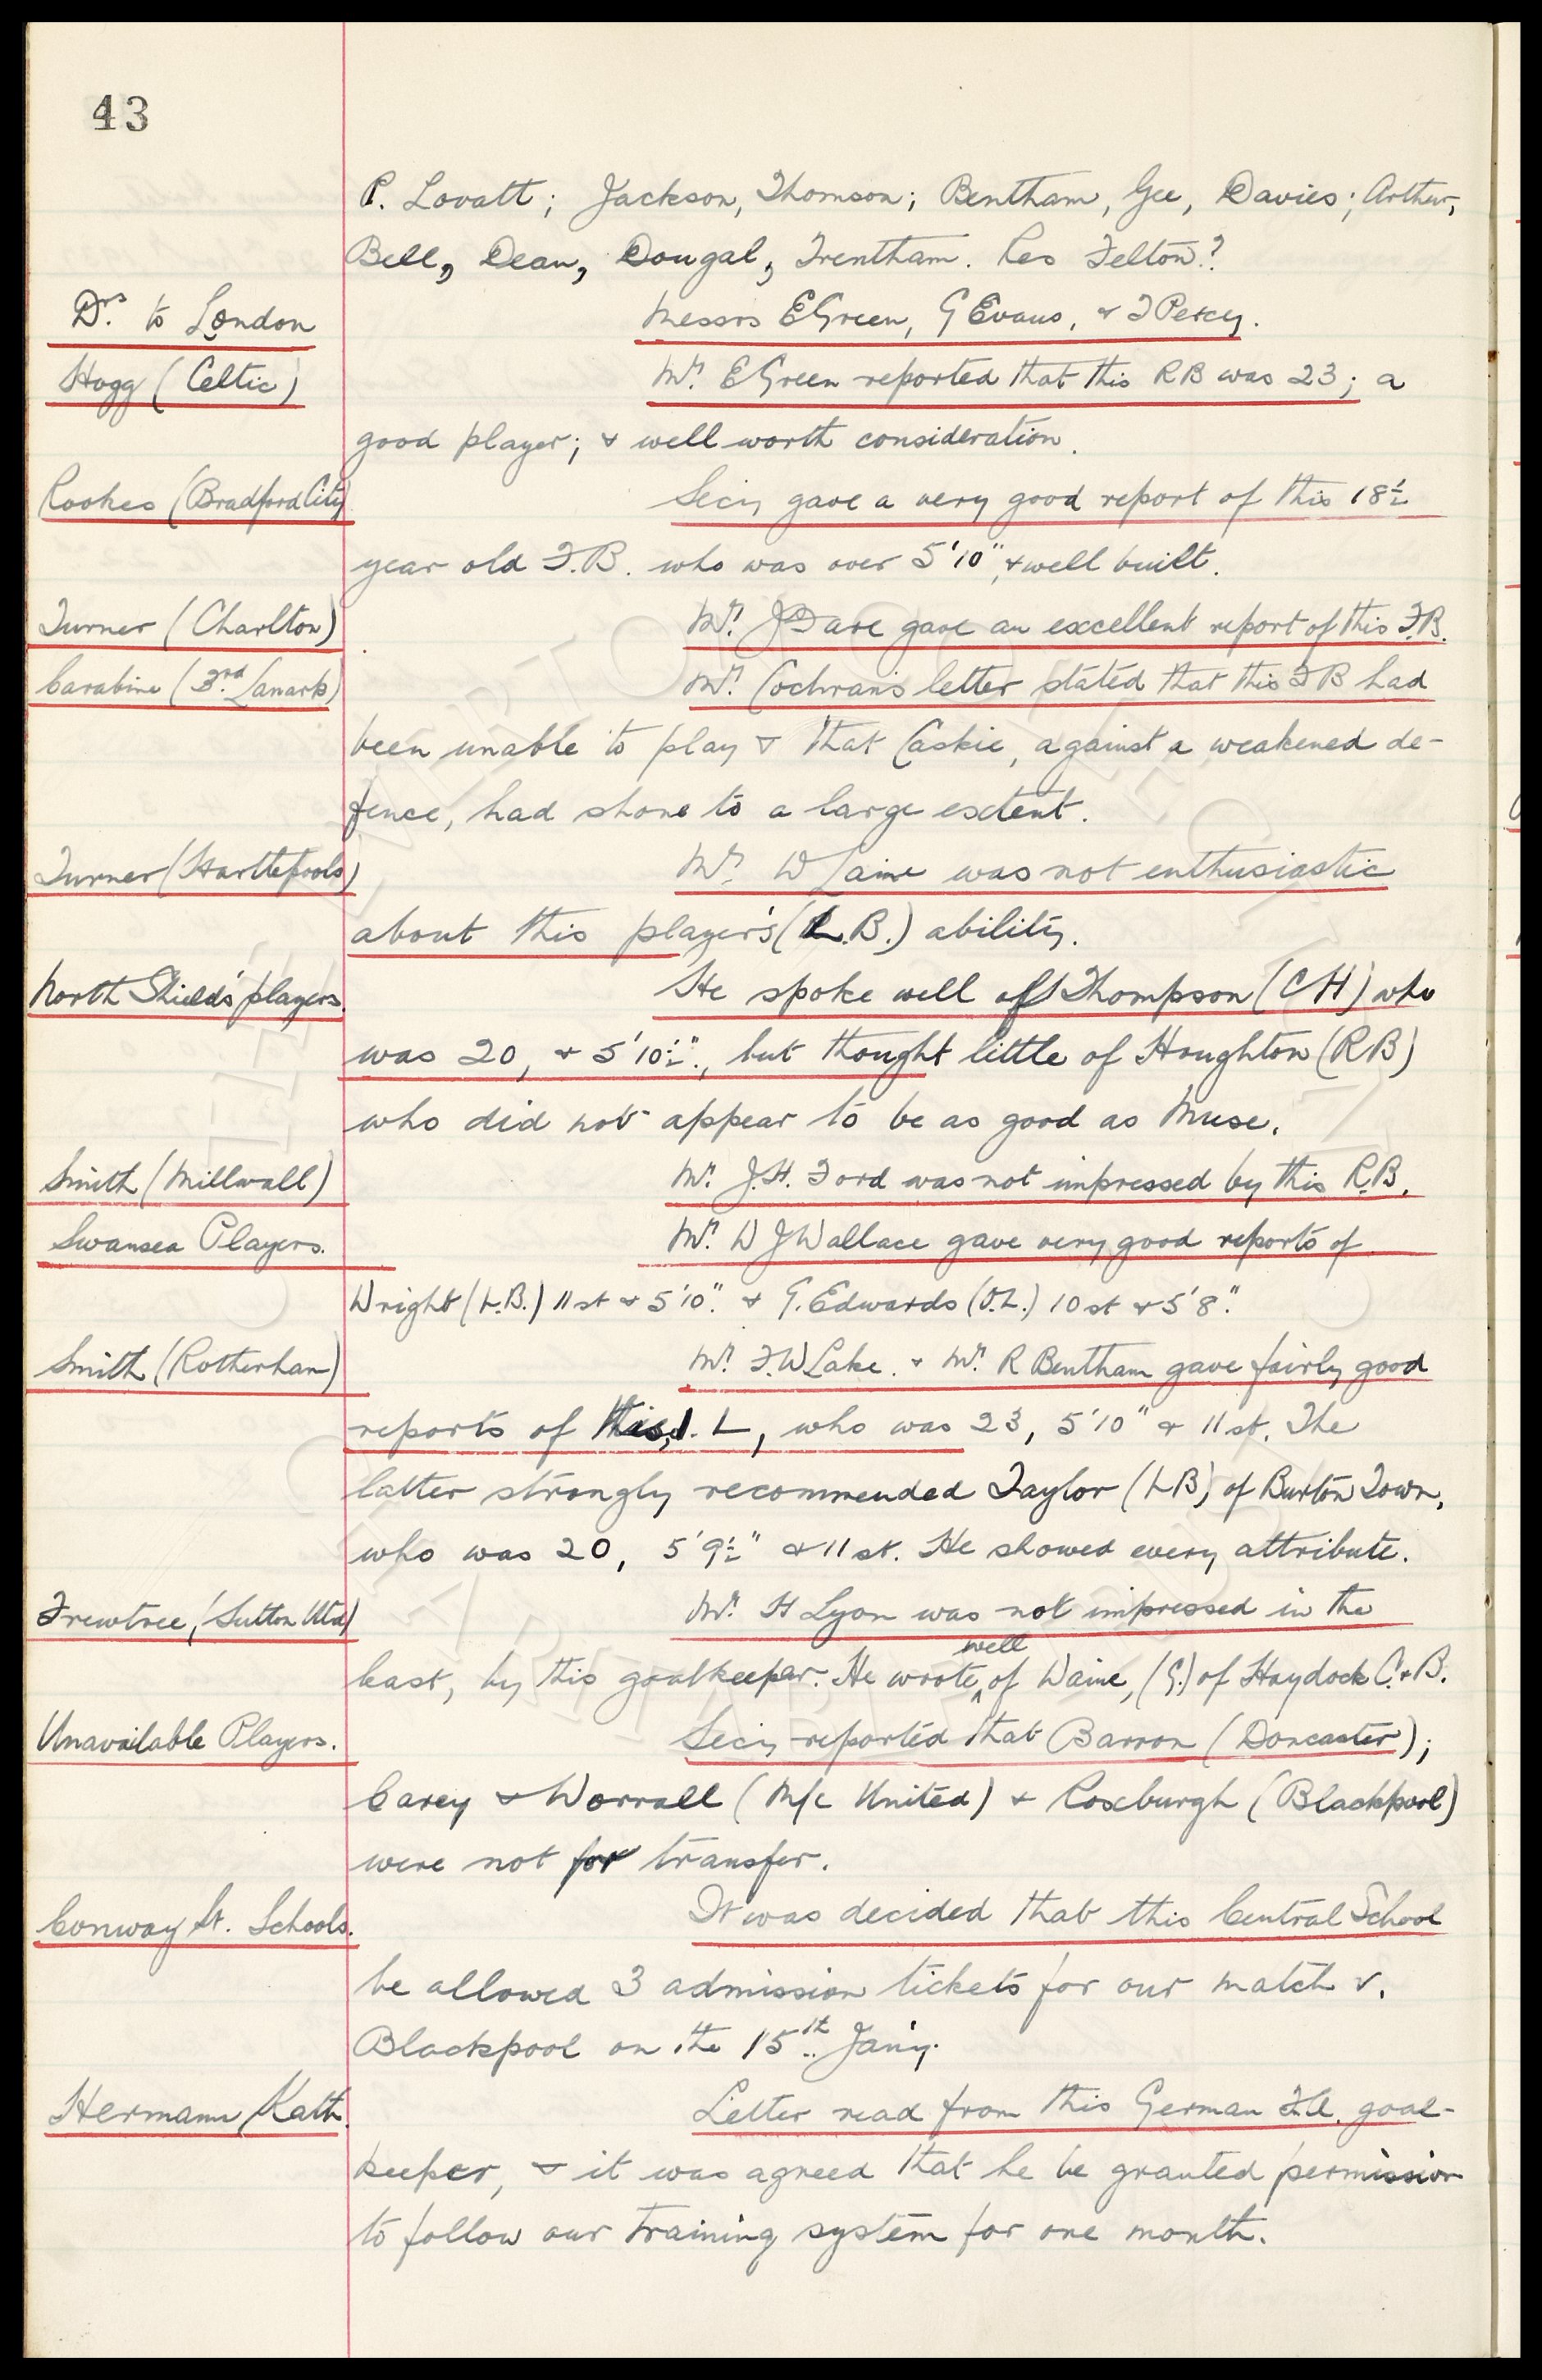 43
P. Lovatt; Jackson, Thomson; Bentham, Gee, Davies; Arthur,
Bell, Dean, Dougal, Trentham. Res Felton?
Drs. to London
Messrs E Green, G Evans, & T Percy.
Hogg (Celtic)
Mr. E Green reported that this RB was 23; a
good player; & well worth consideration.
Rookes (Bradford City)
Secy gave a very good report of this 18½
year old F.B. who was over 5'10", & well built.
Turner (Charlton)
Mr. J Dare gave an excellent report of this F.B.
Carabine (3rd. Lanark)
Mr. Cochran's letter stated that this FB had
been unable to play & that Caskie, against a weakened de-
fence, had shone to a large extent.
Turner (Hartlepools)
Mr. W Laine was not enthusiastic
about this player's (L.B.) ability.
North Shields' players.
He spoke well of Thompson (CH) who
was 20, & 5'10½"., but thought little of Houghton (RB)
who did not appear to be as good as Muse.
Smith (Millwall)
Mr. J.H. Ford was not impressed by this R.B.
Swansea Players.
Mr. W J Wallace gave very good reports of
Wright (L.B.) 11 st & 5'10". & G. Edwards (O.L.) 10 st & 5'8".
Smith (Rotherham)
Mr. F.W Lake. & Mr. R Bentham gave fairly good
reports of this, I. L, who was 23, 5'10" & 11 st. The
latter strongly recommended Taylor (LB) of Burton Town,
who was 20, 5'9½" & 11 st. He showed every attribute.
Frewtree, (Sutton Utd)
Mr. H Lyon was not impressed in the
least, by this goalkeeper. He wrote well of Waine, (G.) of Haydock C. & B.
Unavailable Players.
Secy reported that Barron (Doncaster);
Carey & Worrall (M/c United) & Roxburgh (Blackpool)
were not for transfer.
Conway St. Schools.
It was decided that this Central School
be allowed 3 admission tickets for our match v.
Blackpool on the 15th. Jan'y.
Hermann Kath.
Letter read from this German F.A. goal-
keeper, & it was agreed that he be granted permission
to follow our training system for one month.